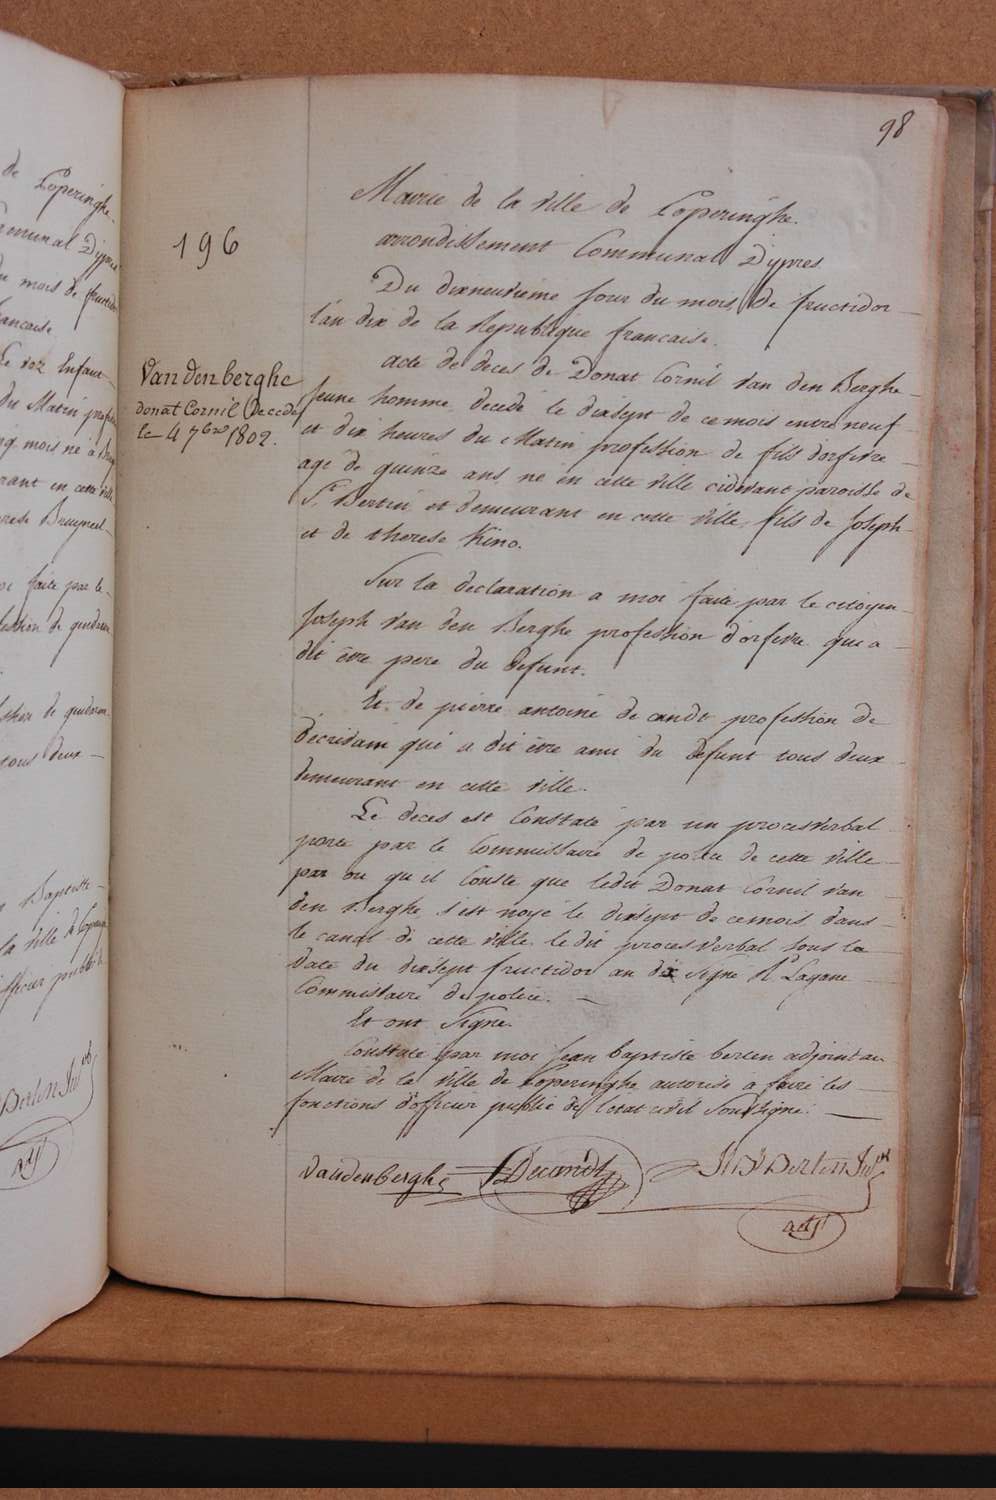 98
196
Mairie de la ville de Poperinghe.
arrondissement Communal Dypres
Du dixneuvieme jour du mois de fructidor
l'an dix de la Republique francaise.
Vandenberghe
donat Cornil Decedé
le 4 7bre 1802.
acte de deces de Donat Cornil van den Berghe
jeune homme, decedé le dixsept de ce mois entre neuf
et dix heures du Matin profession de fils d'orfevre
agé de quinze ans, né en cette ville cidevant paroisse de
St. Bertin et demeurant en cette ville, fils de Joseph
et de therese Kino.
Sur la declaration a moi faite par le citoyen
Joseph van den Berghe profession d'orfevre qui a
dit être pere du defunt.
Et de pierre antoine de candt profession de
decrivain qui a dit être ami du defunt tous deux
demeurant en cette ville.
Le deces est Constaté par un procesverbal
porté par le Commissaire de police de cette ville
par ou qu il Conste que ledit Donat Cornil van
den Berghe s'est noyé le dixsept de ce mois dans
le canal de cette ville. le dit procesverbal sous la
date du dixsept fructidor an dix signé Lagone
Commissaire de police.
Et ont signé.
Constaté par moi Jean baptiste berten adjoint au
Maire de la ville de Poperinghe autorisé à faire les
fonctions d'officier public de l'etat civil Soussigné.
Vandenberghe Decandt J B Berten
adjt
de Poperinghe
Communal Dypres
du mois de fructidor
francaise
du Matin
mois né à
rant en cette ville
Bruyneel
faite par le
tous deux
Baptiste
la ville de
officier public
Berten
adjt